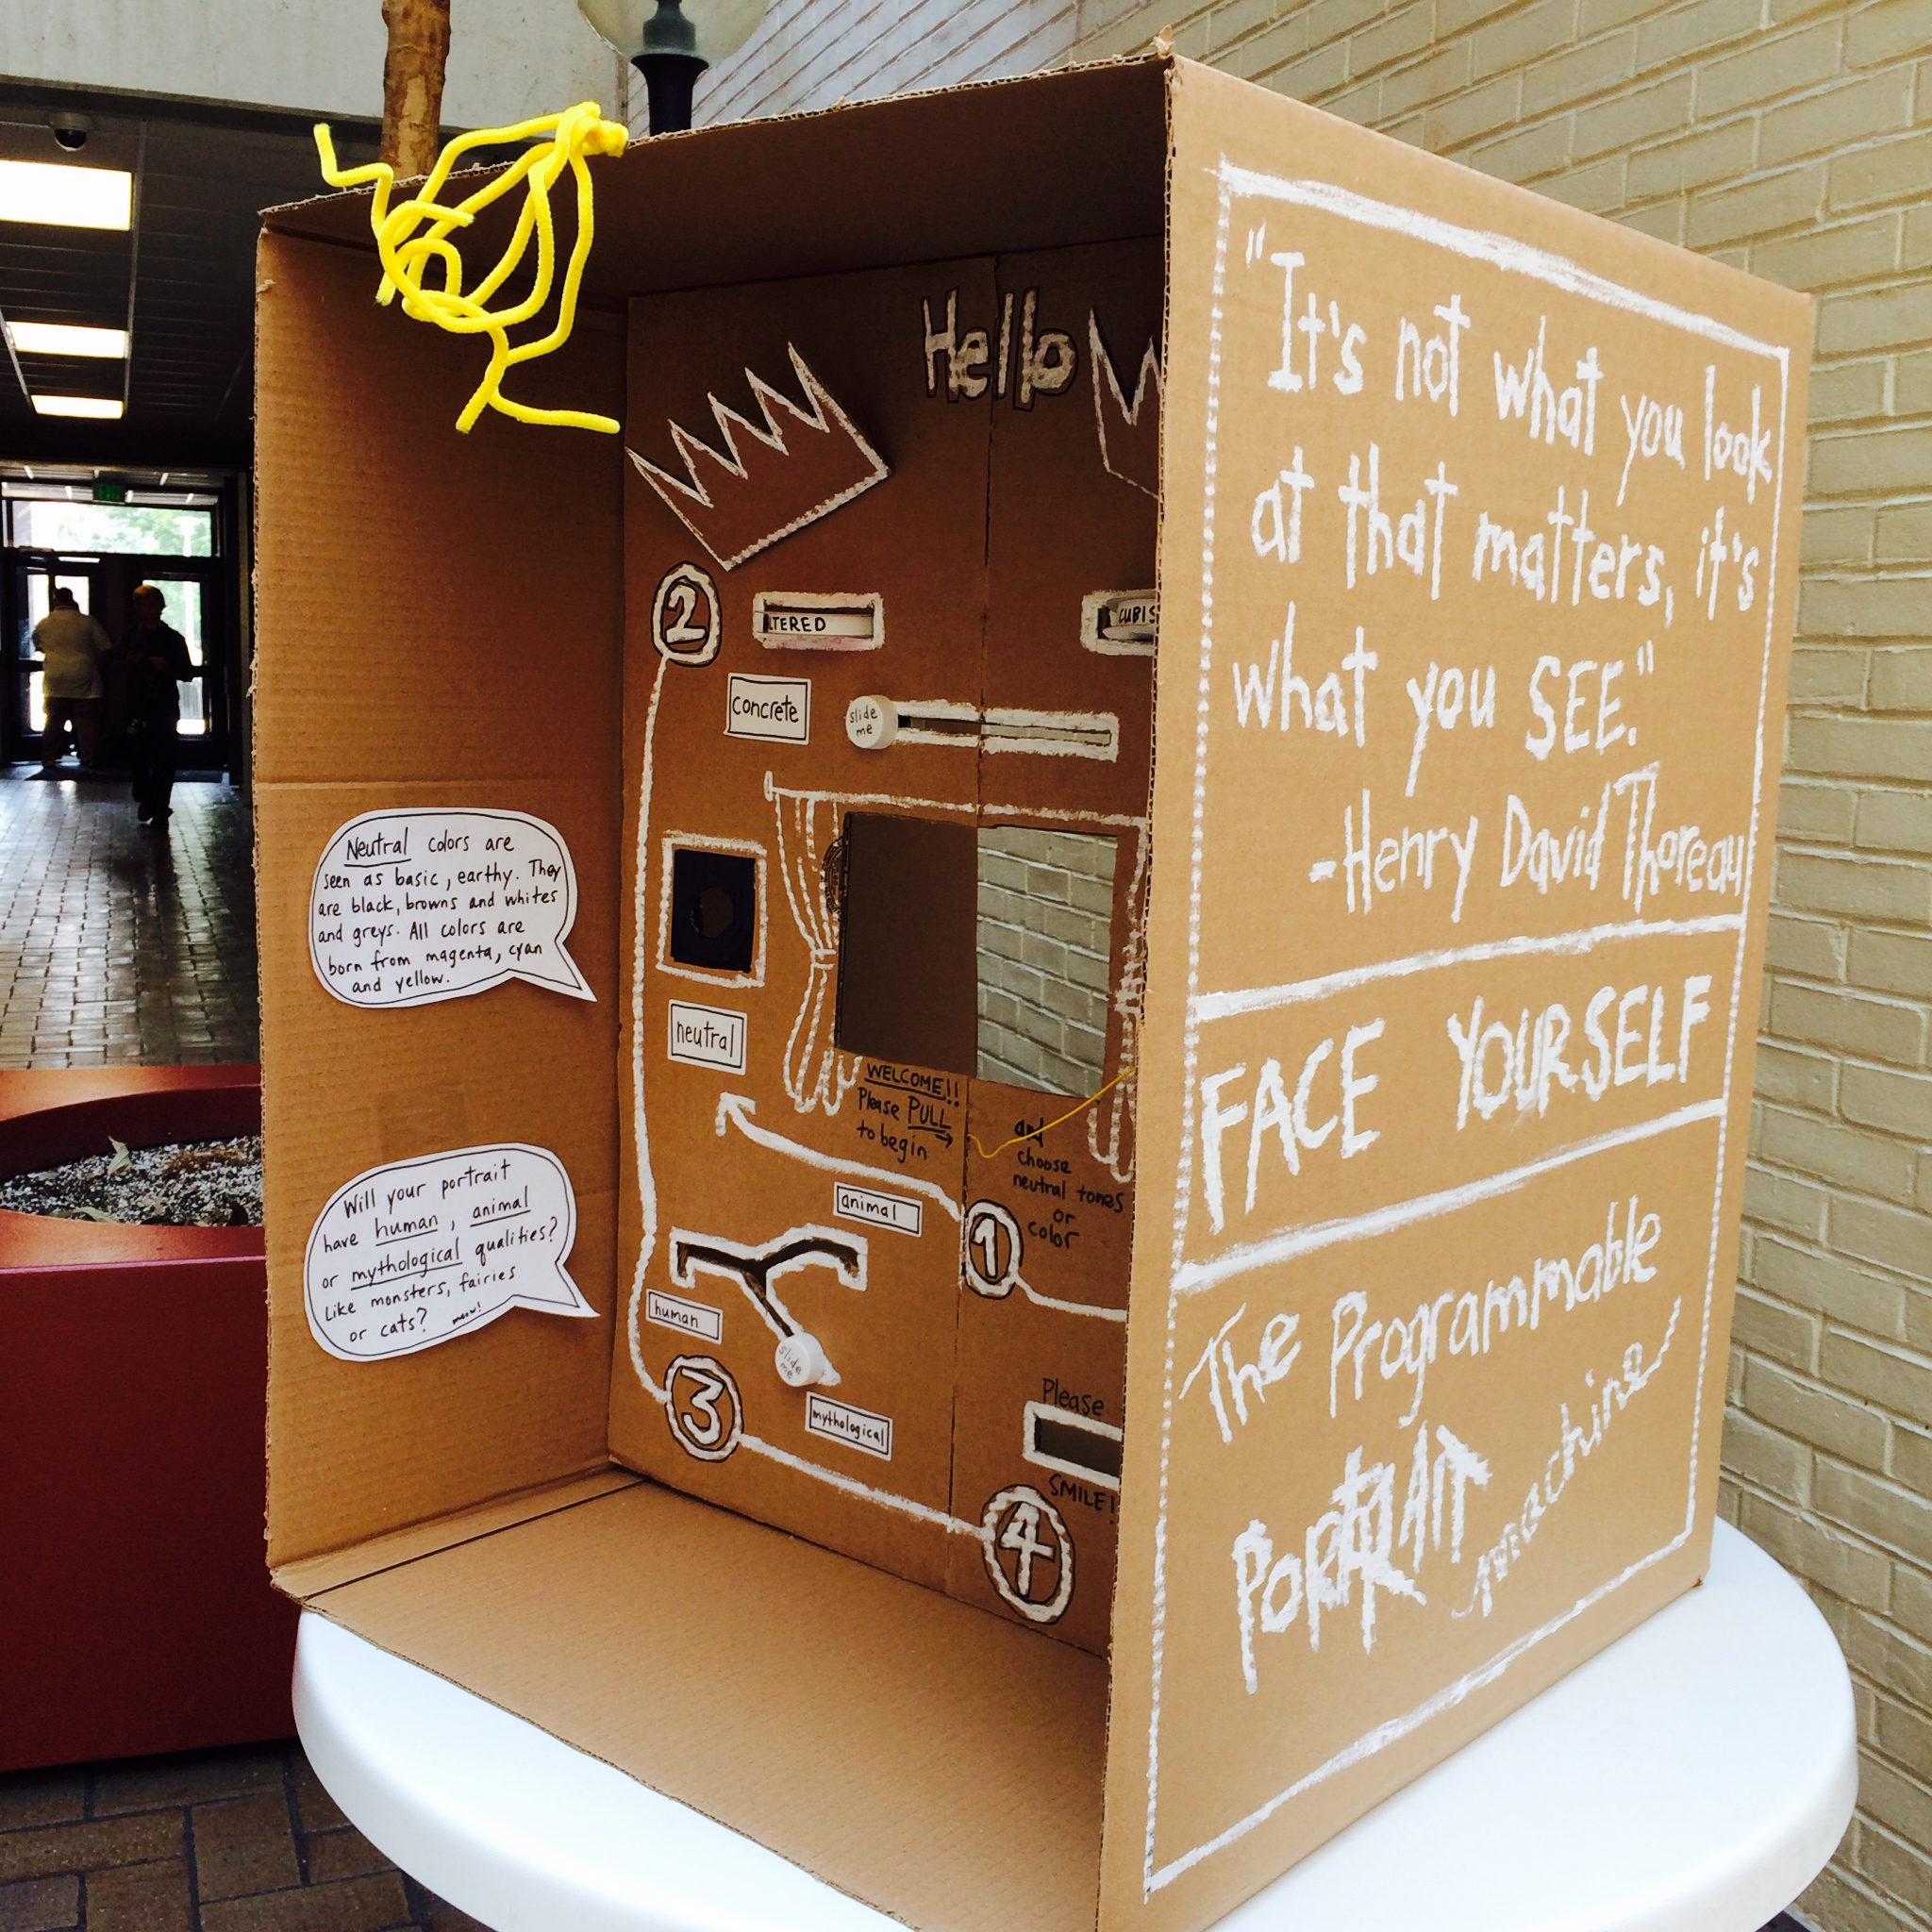 Hello
2
LTERED
CUBIS
concrete
slide
me
Neutral colors are
seen as basic, earthy. They
are black, browns and whites
and greys. All colors are
born from magenta, cyan
and yellow.
neutral
WELCOME!!
Please PULL
to begin
and
choose
neutral tones
or
color
1
Will your portrait
have human, animal
or mythological qualities?
Like monsters, fairies
or cats? meow!
animal
human
slide
me
mythological
3
Please
SMILE!
4
"It's not what you look
at that matters, it's
what you SEE."
-Henry David Thoreau
FACE YOURSELF
The Programmable
PORTRAIT
machine
EXIT